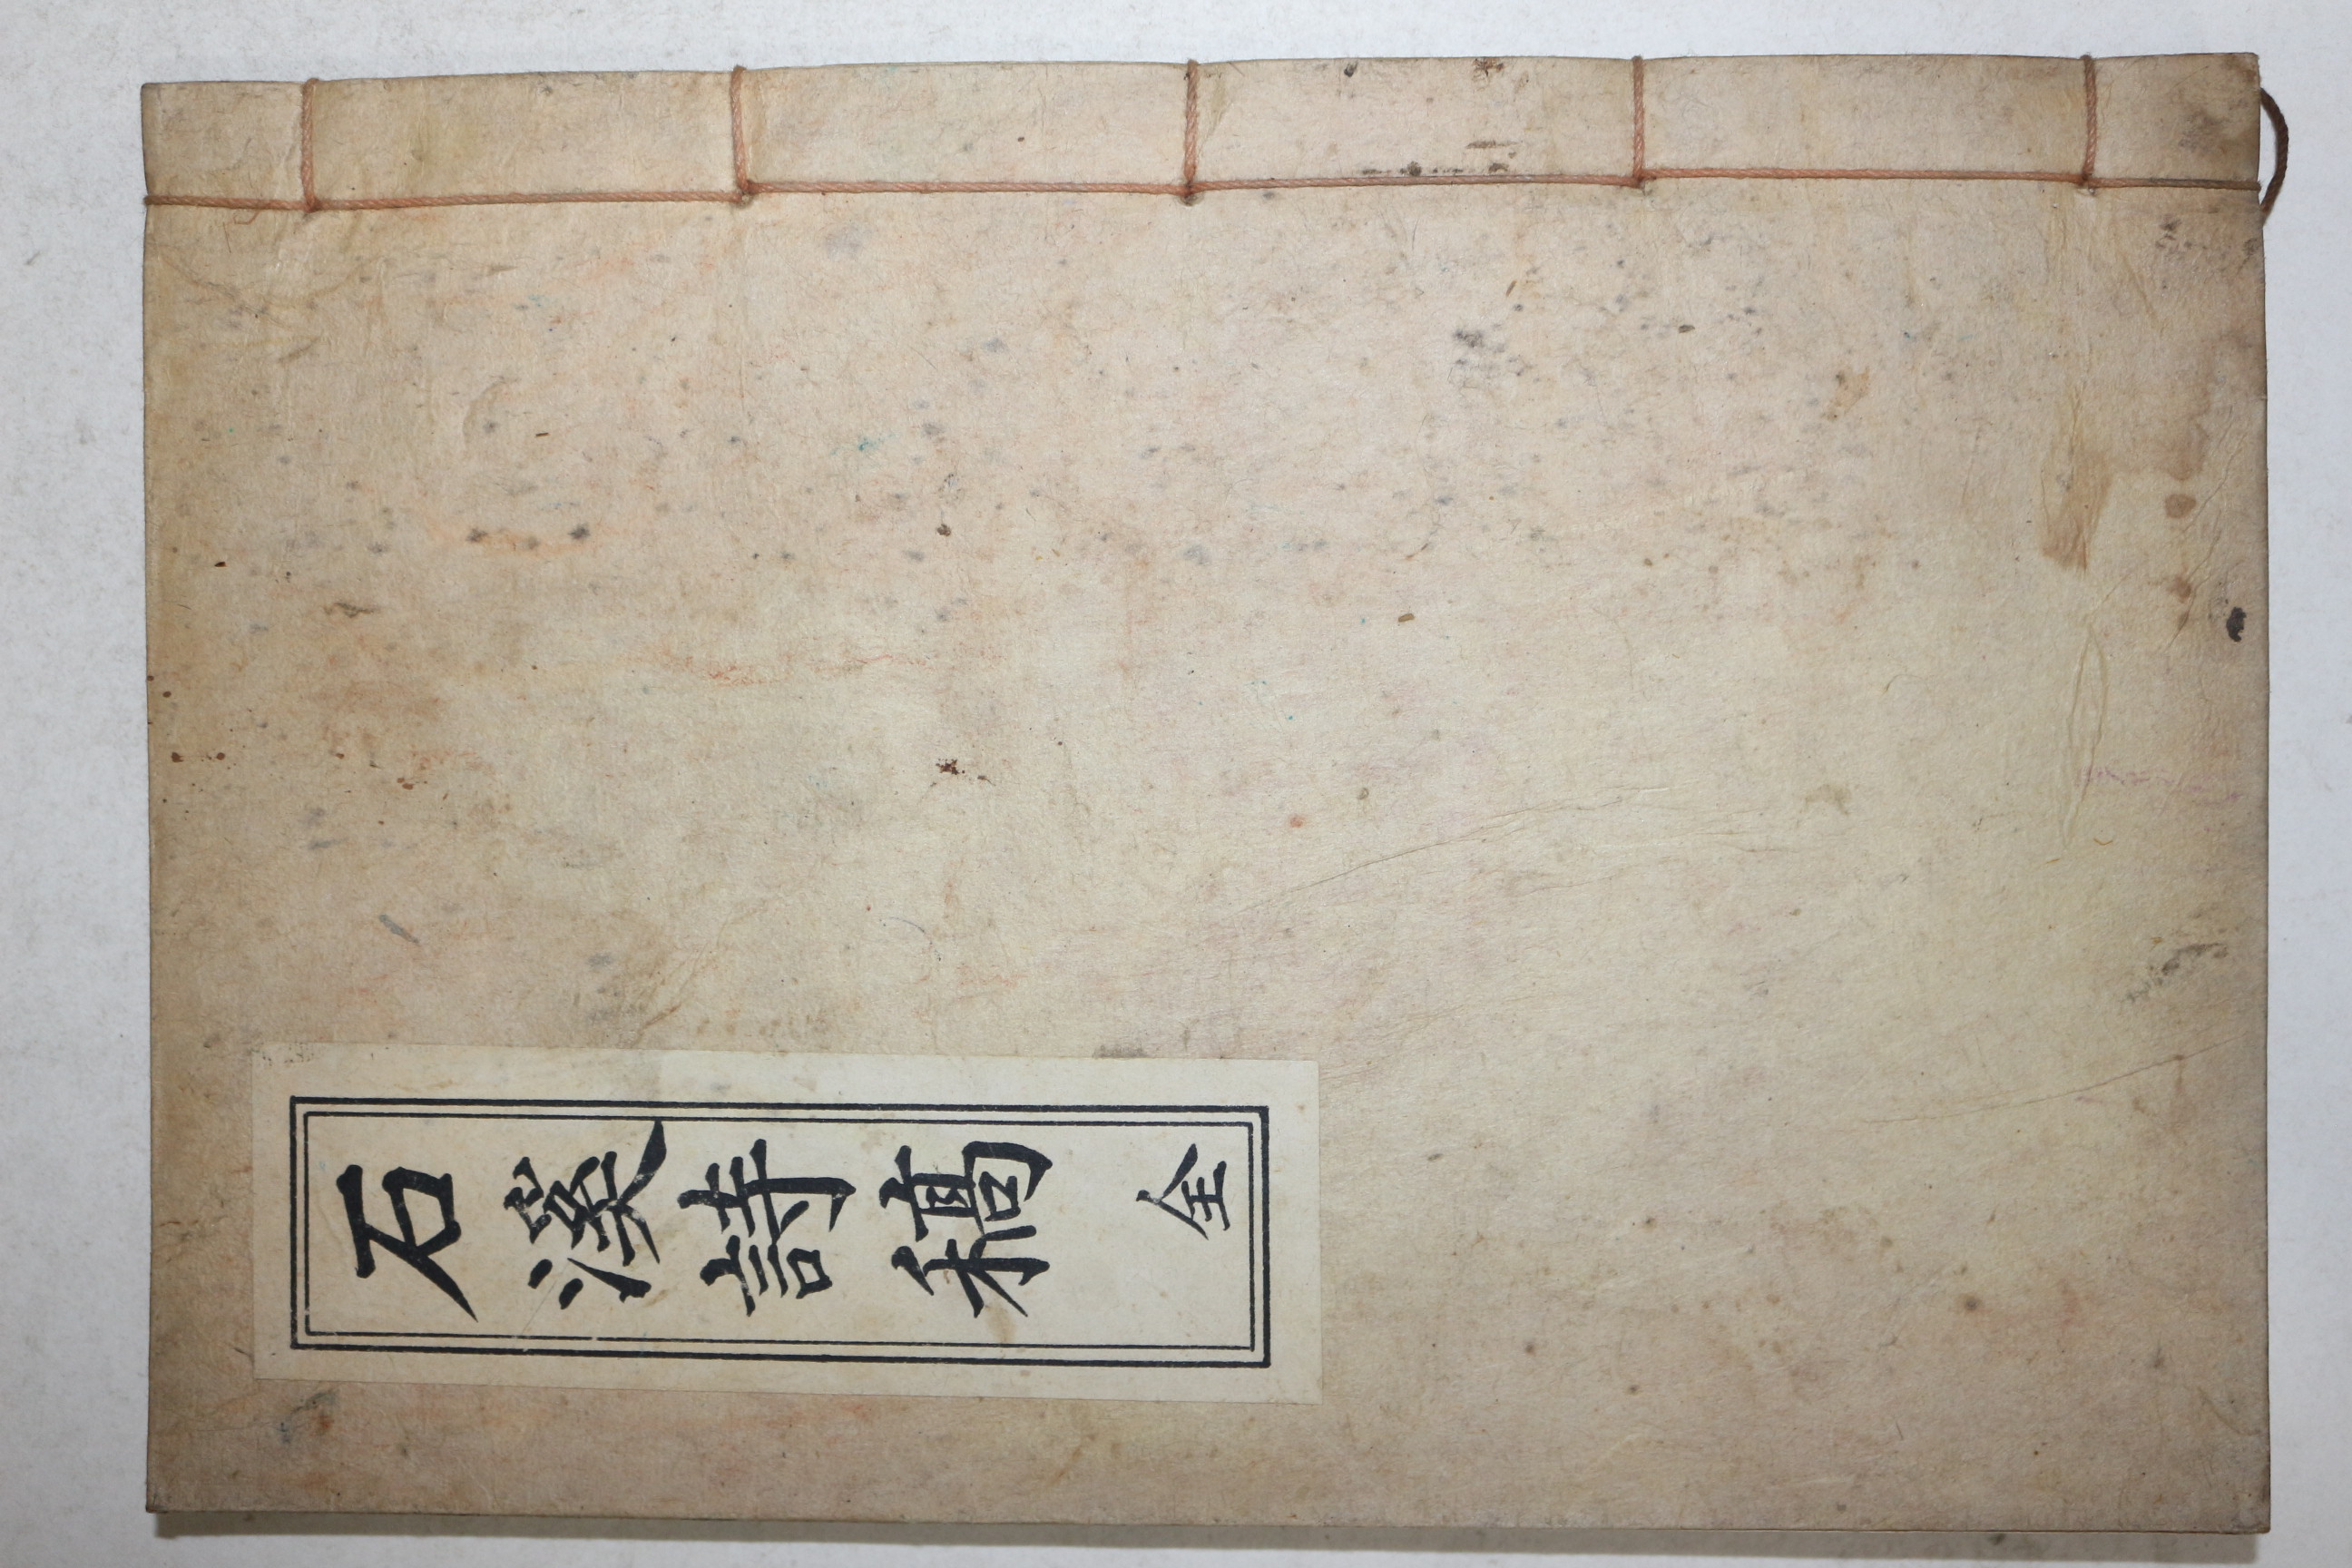 石溪詩稿 全